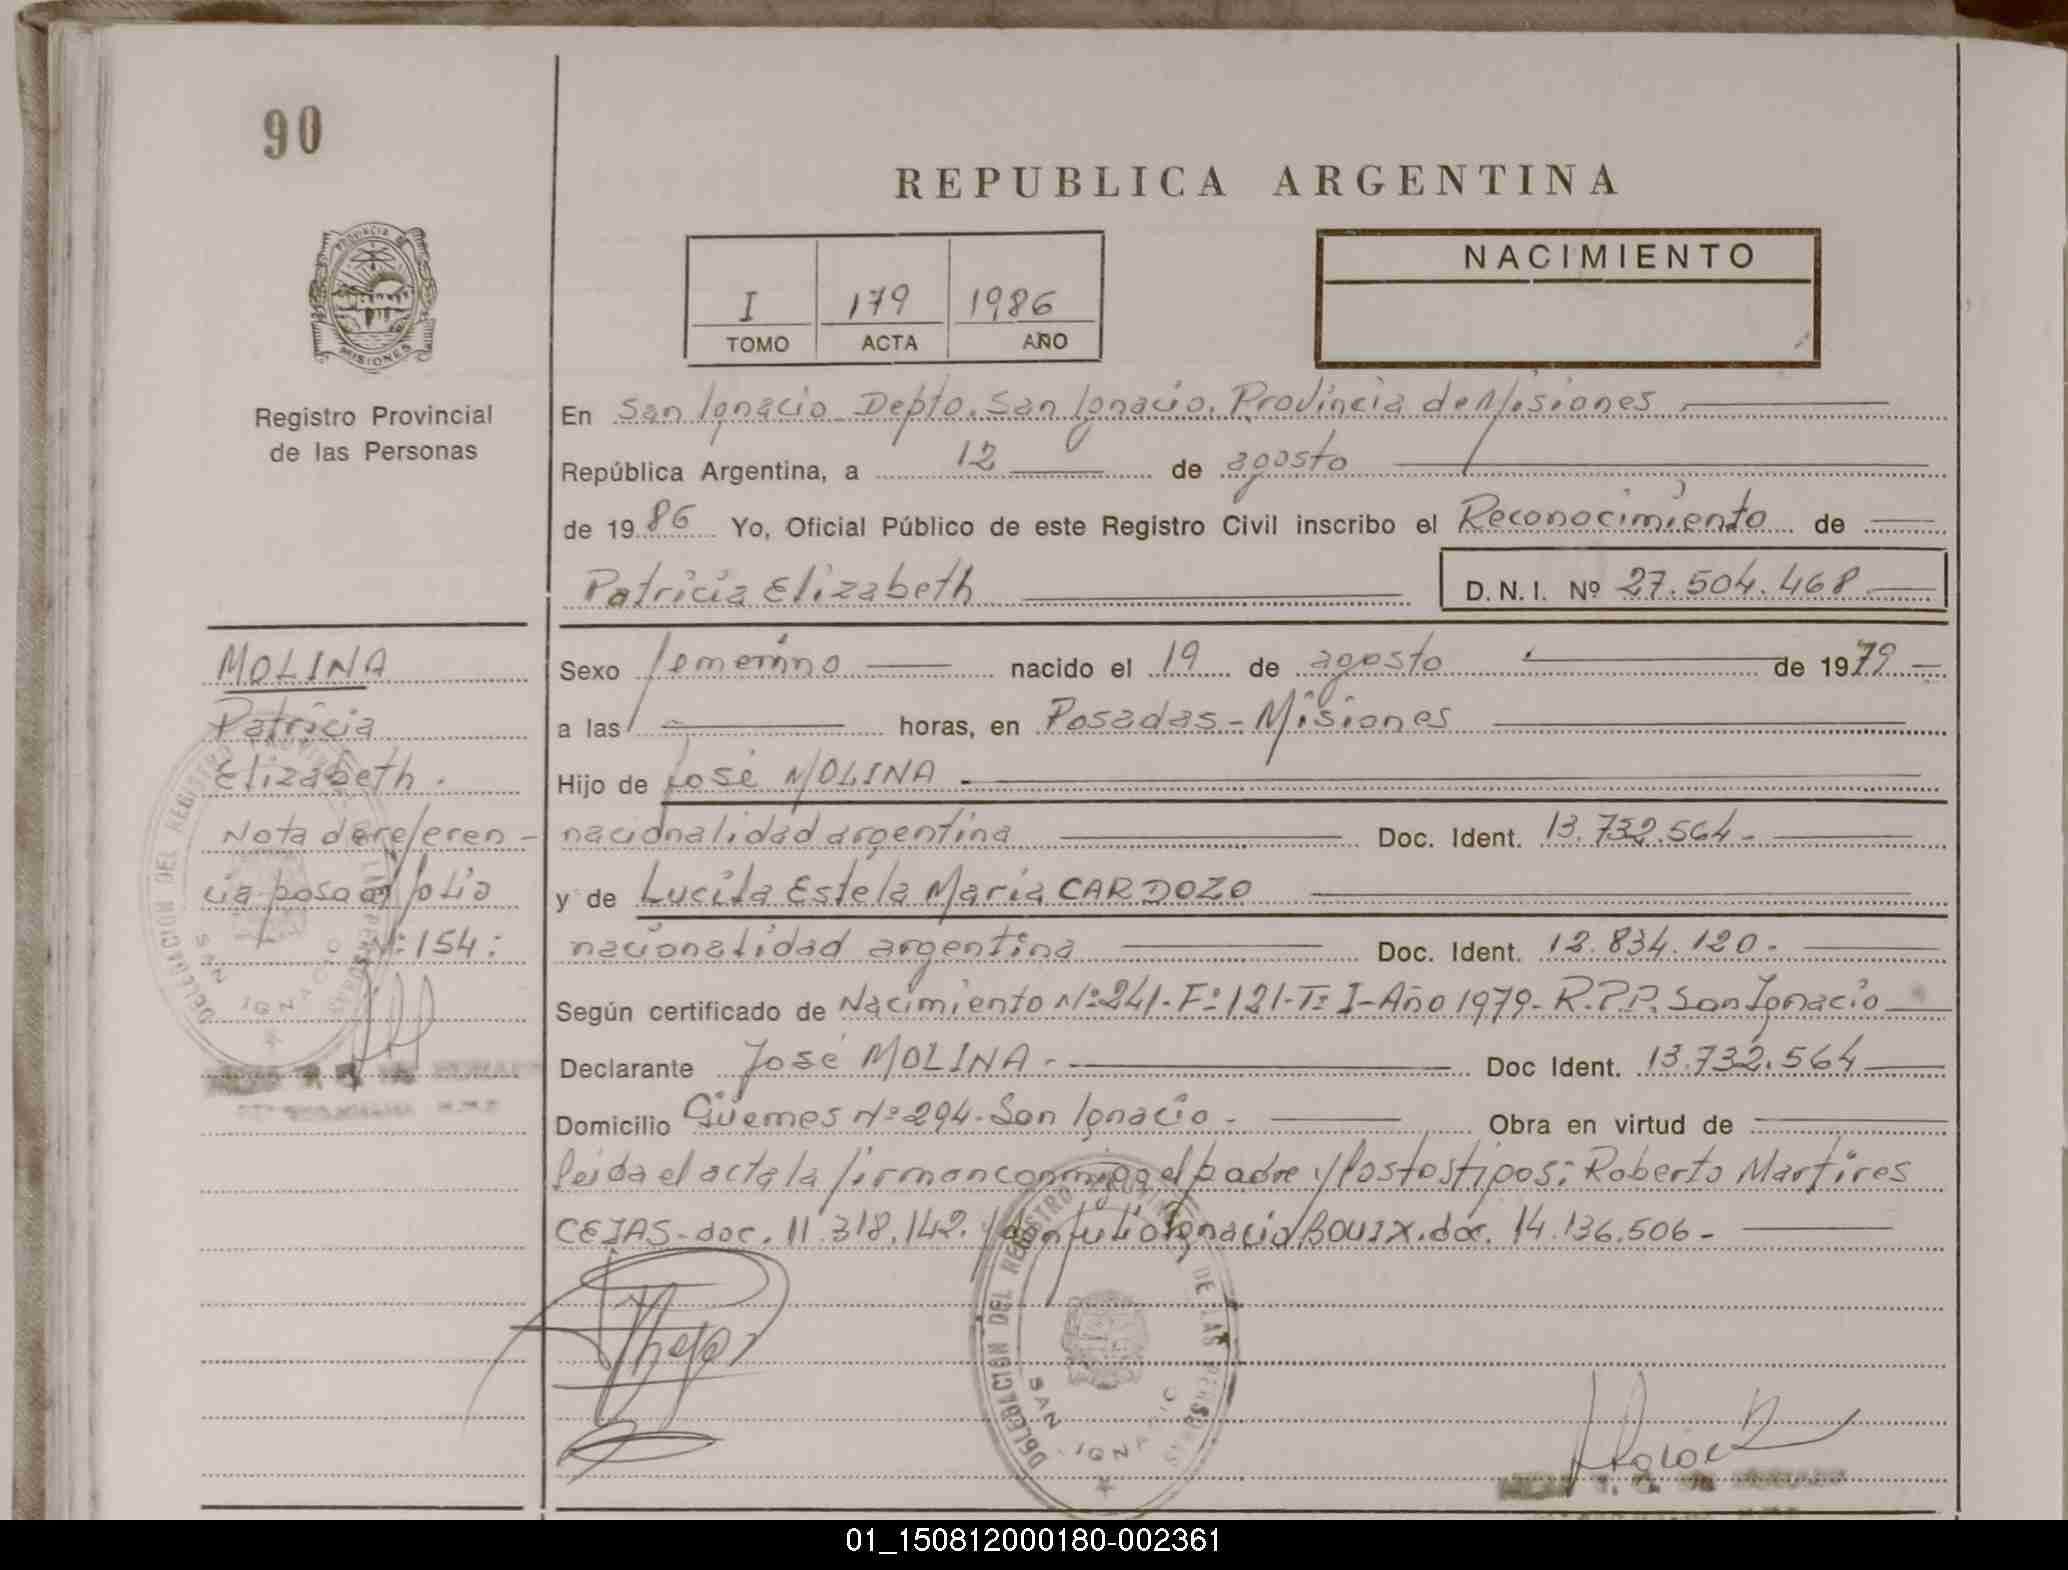 90
REPUBLICA ARGENTINA
PROVINCIA DE
MISIONES
Registro Provincial
de las Personas
I 179 1986
TOMO ACTA AÑO
NACIMIENTO
En San Ignacio Depto. San Ignacio. Provincia de Misiones
República Argentina, a 12 de agosto
de 1986 Yo, Oficial Público de este Registro Civil inscribo el Reconocimiento de
Patricia Elizabeth D.N.I. Nº 27.504.468
MOLINA
Patricia
Elizabeth.
Nota de referen-
cia pasa al folio
Nº 154:
Sexo femenino nacido el 19 de agosto de 1979
a las horas, en Posadas - Misiones
Hijo de José MOLINA
nacionalidad argentina Doc. Ident. 13.732.564-
y de Lucila Estela María CARDOZO
nacionalidad argentina Doc. Ident. 12.834.120-
Según certificado de Nacimiento Nº 241-Fº 121-Tº I-Año 1979- R.P.P. San Ignacio
Declarante José MOLINA- Doc Ident. 13.732.564
Domicilio Güemes Nº 294- San Ignacio- Obra en virtud de
leida el acta la firman conmigo el padre y los testigos: Roberto Martires
CEJAS-doc. 11.318.142. y don Julio Ignacio BOUIX. doc. 14.136.506-
DELEGACION DEL REGISTRO PROVINCIAL DE LAS PERSONAS
SAN IGNACIO
DELEGACION DEL REGISTRO PROVINCIAL DE LAS PERSONAS
SAN IGNACIO
01_150812000180-002361